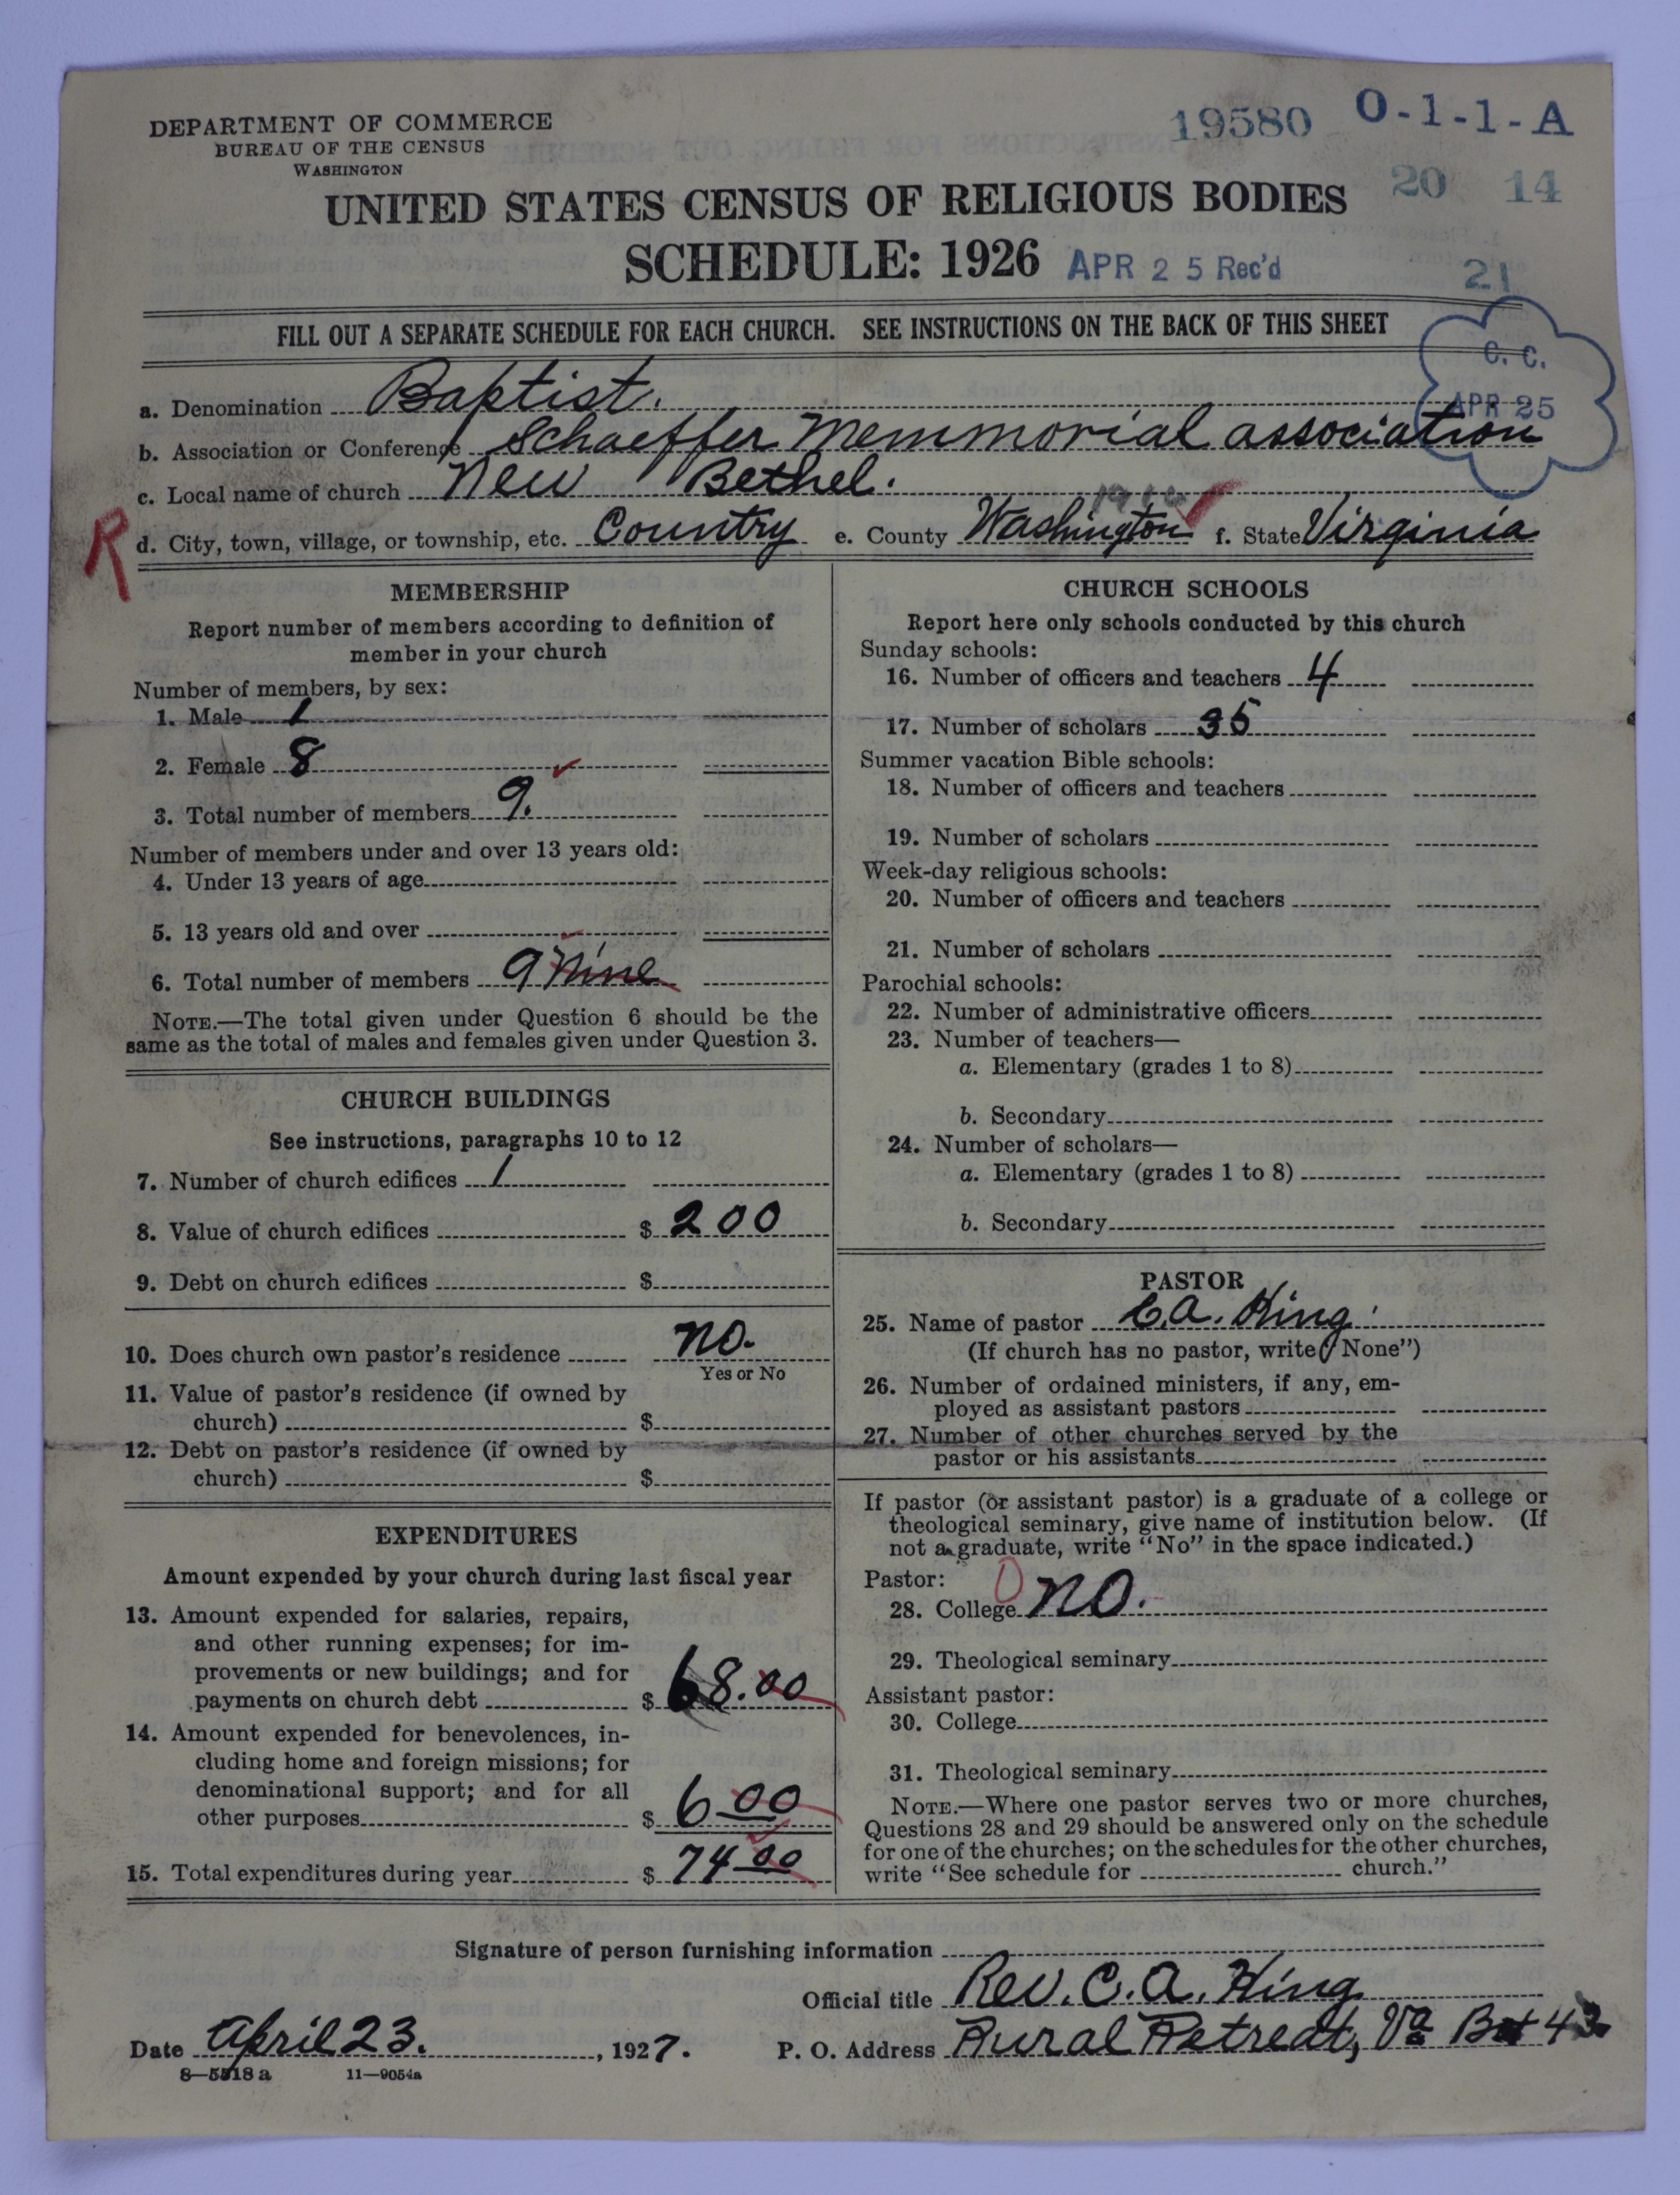 DEPARTMENT OF COMMERCE
BUREAU OF THE CENSUS
WASHINGTON
19580 O-1-1-A
20 14
UNITED STATES CENSUS OF RELIGIOUS BODIES
SCHEDULE: 1926 APR 25 Rec'd
21
FILL OUT A SEPARATE SCHEDULE FOR EACH CHURCH. SEE INSTRUCTIONS ON THE BACK OF THIS SHEET
C. C.
APR 25
a. Denomination Baptist.
b. Association or Conference Schaeffer Memmorial association
c. Local name of church New Bethel.
R
d. City, town, village, or township, etc. Country e. County Washington f. State Virginia
MEMBERSHIP
Report number of members according to definition of
member in your church
Number of members, by sex:
1. Male 1
2. Female 8
3. Total number of members 9.
Number of members under and over 13 years old:
4. Under 13 years of age
5. 13 years old and over
6. Total number of members 9 Nine
NOTE.—The total given under Question 6 should be the
same as the total of males and females given under Question 3.
CHURCH BUILDINGS
See instructions, paragraphs 10 to 12
7. Number of church edifices 1
8. Value of church edifices $ 200
9. Debt on church edifices $
10. Does church own pastor's residence no.
Yes or No
11. Value of pastor's residence (if owned by
church) $
12. Debt on pastor's residence (if owned by
church) $
EXPENDITURES
Amount expended by your church during last fiscal year
13. Amount expended for salaries, repairs,
and other running expenses; for im-
provements or new buildings; and for
payments on church debt $ 68.00
14. Amount expended for benevolences, in-
cluding home and foreign missions; for
denominational support; and for all
other purposes $ 6 00
15. Total expenditures during year $ 74 00
CHURCH SCHOOLS
Report here only schools conducted by this church
Sunday schools:
16. Number of officers and teachers 4
17. Number of scholars 35
Summer vacation Bible schools:
18. Number of officers and teachers
19. Number of scholars
Week-day religious schools:
20. Number of officers and teachers
21. Number of scholars
Parochial schools:
22. Number of administrative officers
23. Number of teachers—
a. Elementary (grades 1 to 8)
b. Secondary
24. Number of scholars—
a. Elementary (grades 1 to 8)
b. Secondary
PASTOR
25. Name of pastor C.A. King.
(If church has no pastor, write "None")
26. Number of ordained ministers, if any, em-
ployed as assistant pastors
27. Number of other churches served by the
pastor or his assistants
If pastor (or assistant pastor) is a graduate of a college or
theological seminary, give name of institution below. (If
not a graduate, write "No" in the space indicated.)
Pastor: 0
28. College no.
29. Theological seminary
Assistant pastor:
30. College
31. Theological seminary
NOTE.—Where one pastor serves two or more churches,
Questions 28 and 29 should be answered only on the schedule
for one of the churches; on the schedules for the other churches,
write "See schedule for church."
Signature of person furnishing information
Official title Rev. C. A. King
Date April 23., 1927. P. O. Address Rural Retreat, Va
8—5518 a 11—9054a